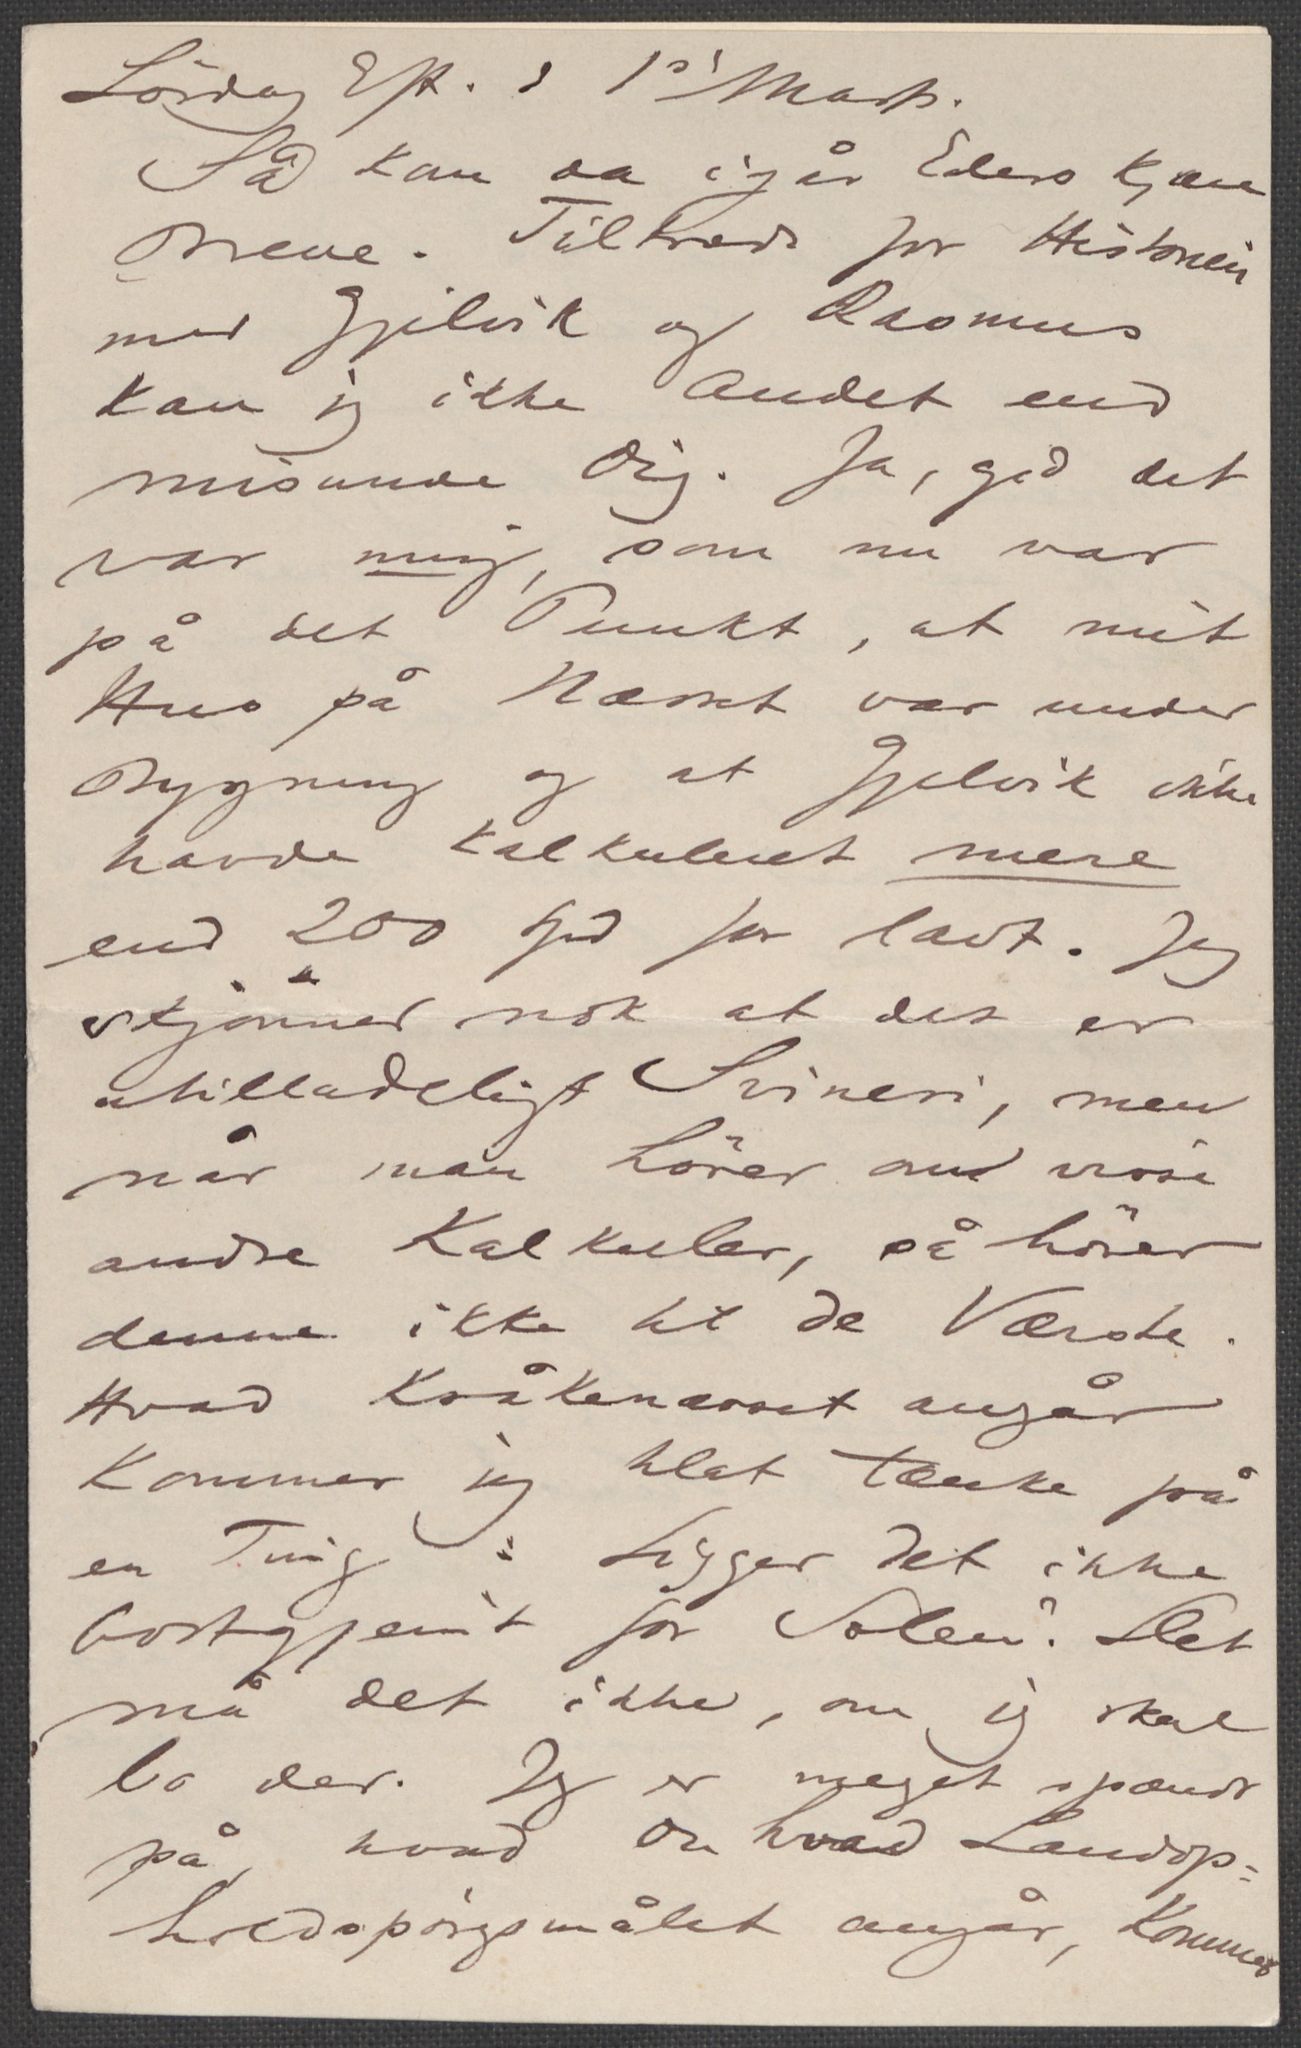 Lördag Eft. d 1st Marts.
Så kom da igår Eders kjære
Breve. Tiltrods for Historien
med Gjelvik og Rasmus
kan jeg ikke Andet end
misunde Dig. Ja, gid det
var mig, som nu var
på det Punkt, at mit
Hus på Næsset var under
Bygning og at Gjelvik ikke
havde kalkuleret mere
end 200 Spd for lavt. Jeg
skjönner nok at det er
utilladeligt Svineri, men
når man hörer om visse
andre Kalkuler, så hörer
denne ikke til de Værste.
Hvad Kråkenæsset angår
kommer jeg til at tænke på
en Ting: Ligger det ikke
bortgjemt for Solen? Det
må det ikke, om jeg skal
bo der. Jeg er meget spændt
på, hvad Du hvad Landop=
holdspörgsmålet angår, kommer